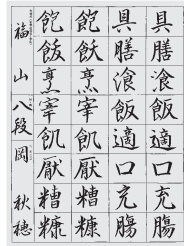 具膳飡飯適口充腸
具膳飡飯適口充腸
飽飫烹宰飢厭糟糠
飽飫烹宰飢厭糟糠
福山 八段 岡 秋穂